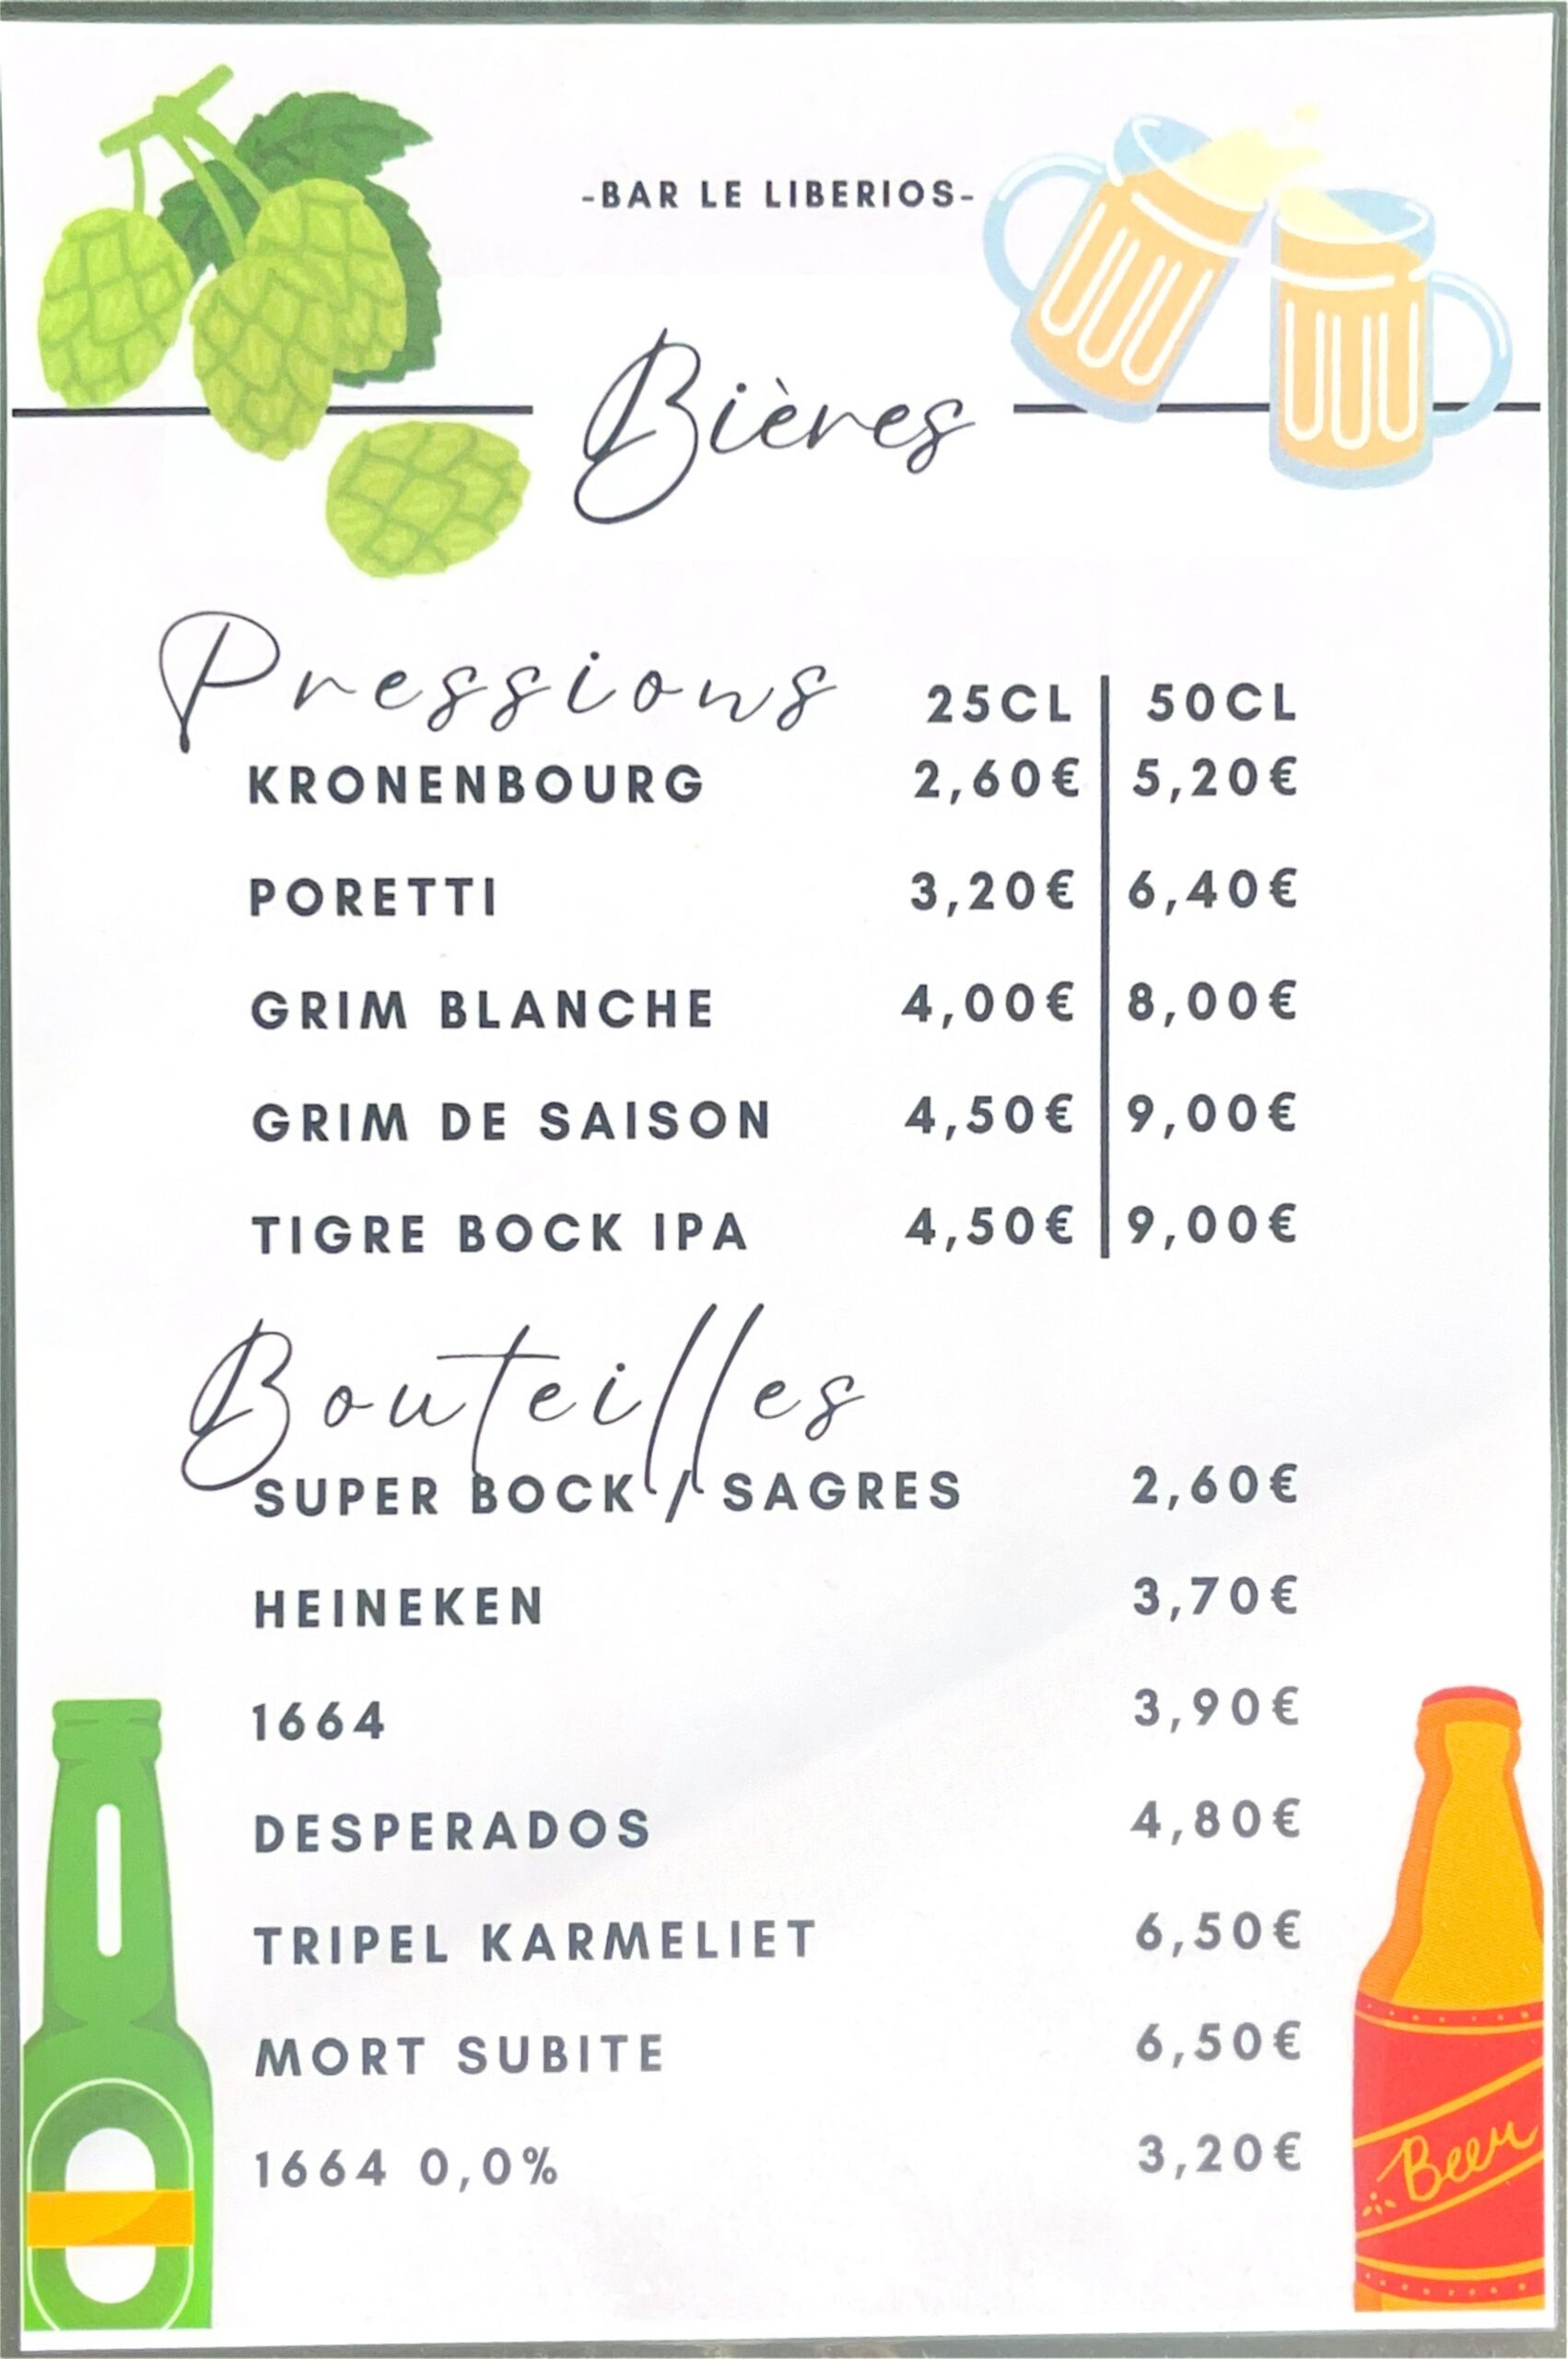 -BAR LE LIBERIOS-
Bières
Pressions 25CL 50CL
KRONENBOURG 2,60€ 5,20€
PORETTI 3,20€ 6,40€
GRIM BLANCHE 4,00€ 8,00€
GRIM DE SAISON 4,50€ 9,00€
TIGRE BOCK IPA 4,50€ 9,00€
Bouteilles
SUPER BOCK / SAGRES 2,60€
HEINEKEN 3,70€
1664 3,90€
DESPERADOS 4,80€
TRIPEL KARMELIET 6,50€
MORT SUBITE 6,50€
1664 0,0% 3,20€
Beer